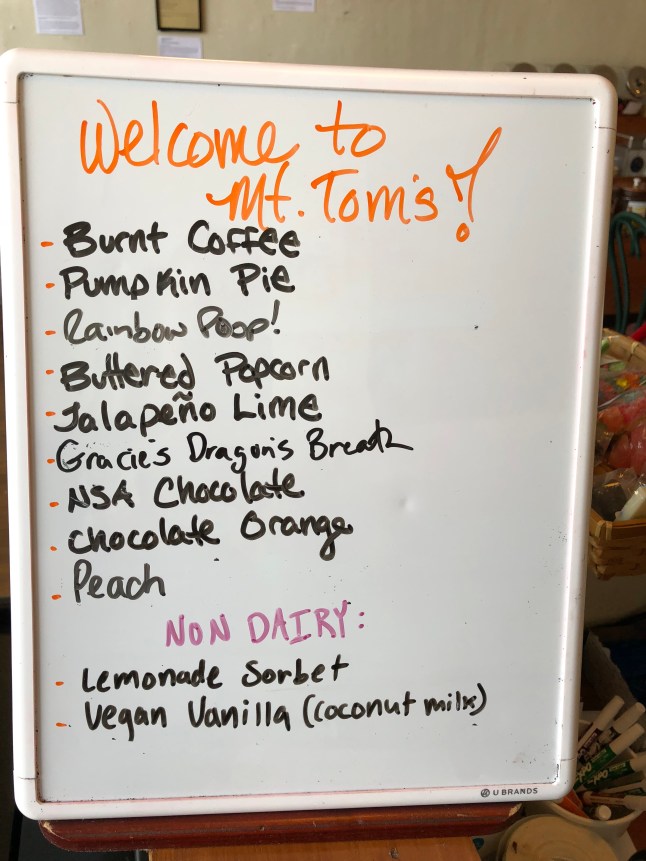 Welcome to
Mt. Tom's!
- Burnt Coffee
- Pumpkin Pie
- Rainbow Poop!
- Buttered Popcorn
- Jalapeño Lime
- Gracie's Dragon's Breath
- NSA Chocolate
- Chocolate Orange
- Peach
NON DAIRY:
- Lemonade Sorbet
- Vegan Vanilla (coconut milk)
U BRANDS